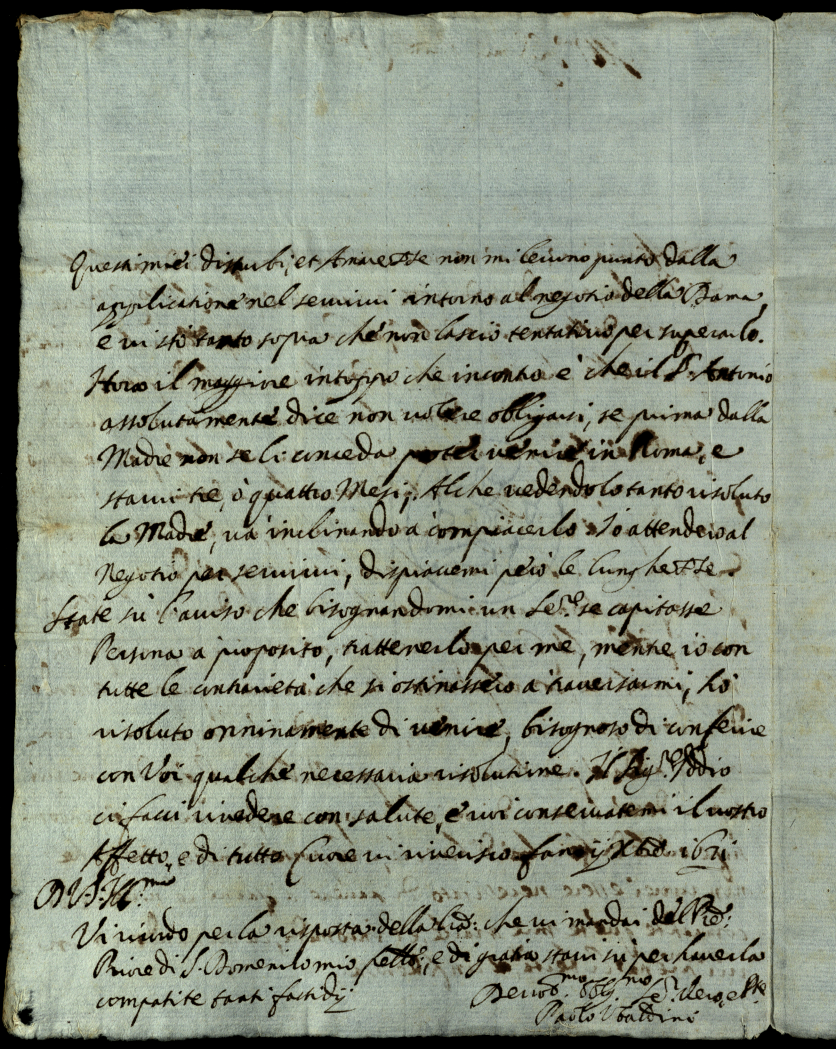 Questi miei disturbi, et Amarezze non mi levono punto dalla
applicatione nel servirvi intorno al negotio della Dama,
e vi stò tanto sopra che non lascio tentativo per superarlo.
Hora il maggiore intoppo che incontro è che il S.r Antonio
assolutamente dice non volere obligarsi, se prima dalla
Madre non se li conceda poter venire in Roma, e
starvi tre, ò quattro Mesi; Al che vedendolo tanto risoluto
la Madre, và inclinando a compiacerlo. Io attenderò al
Negotio per servirvi, dispiacemi però le lunghezze.
State sù l'aviso che bisognandomi un Se.re se capitasse
Persona a proposito, trattenerlo per me, mentre io con
tutte le contrarietà che si ostinassero a traversarmi, hò
risoluto onninamente di venire, bisognoso di conferire
con Voi qualche necessaria risolutione. Il Sig.re Iddio
ci facci rivedere con salute, e voi conservatemi il vostro
Affetto, e di tutto Cuore vi riverisco
D V.S. Ill.ma
Vi ricordo per la risposta della che vi mandai del
Priore di S. Domenico mio e di gratia starvi sù per haverla
compatite tanti fastidij
Paolo Ubaldini